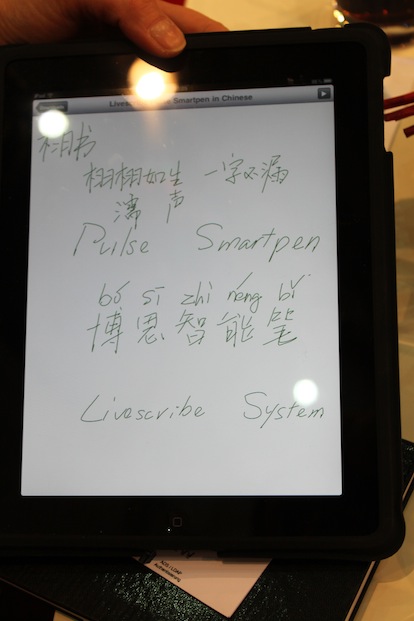 Smartpen in Chinese
栩书
栩栩如生 一字不漏
声
Pulse Smartpen
bó sī zhì néng bǐ
博思智能笔
Livescribe System